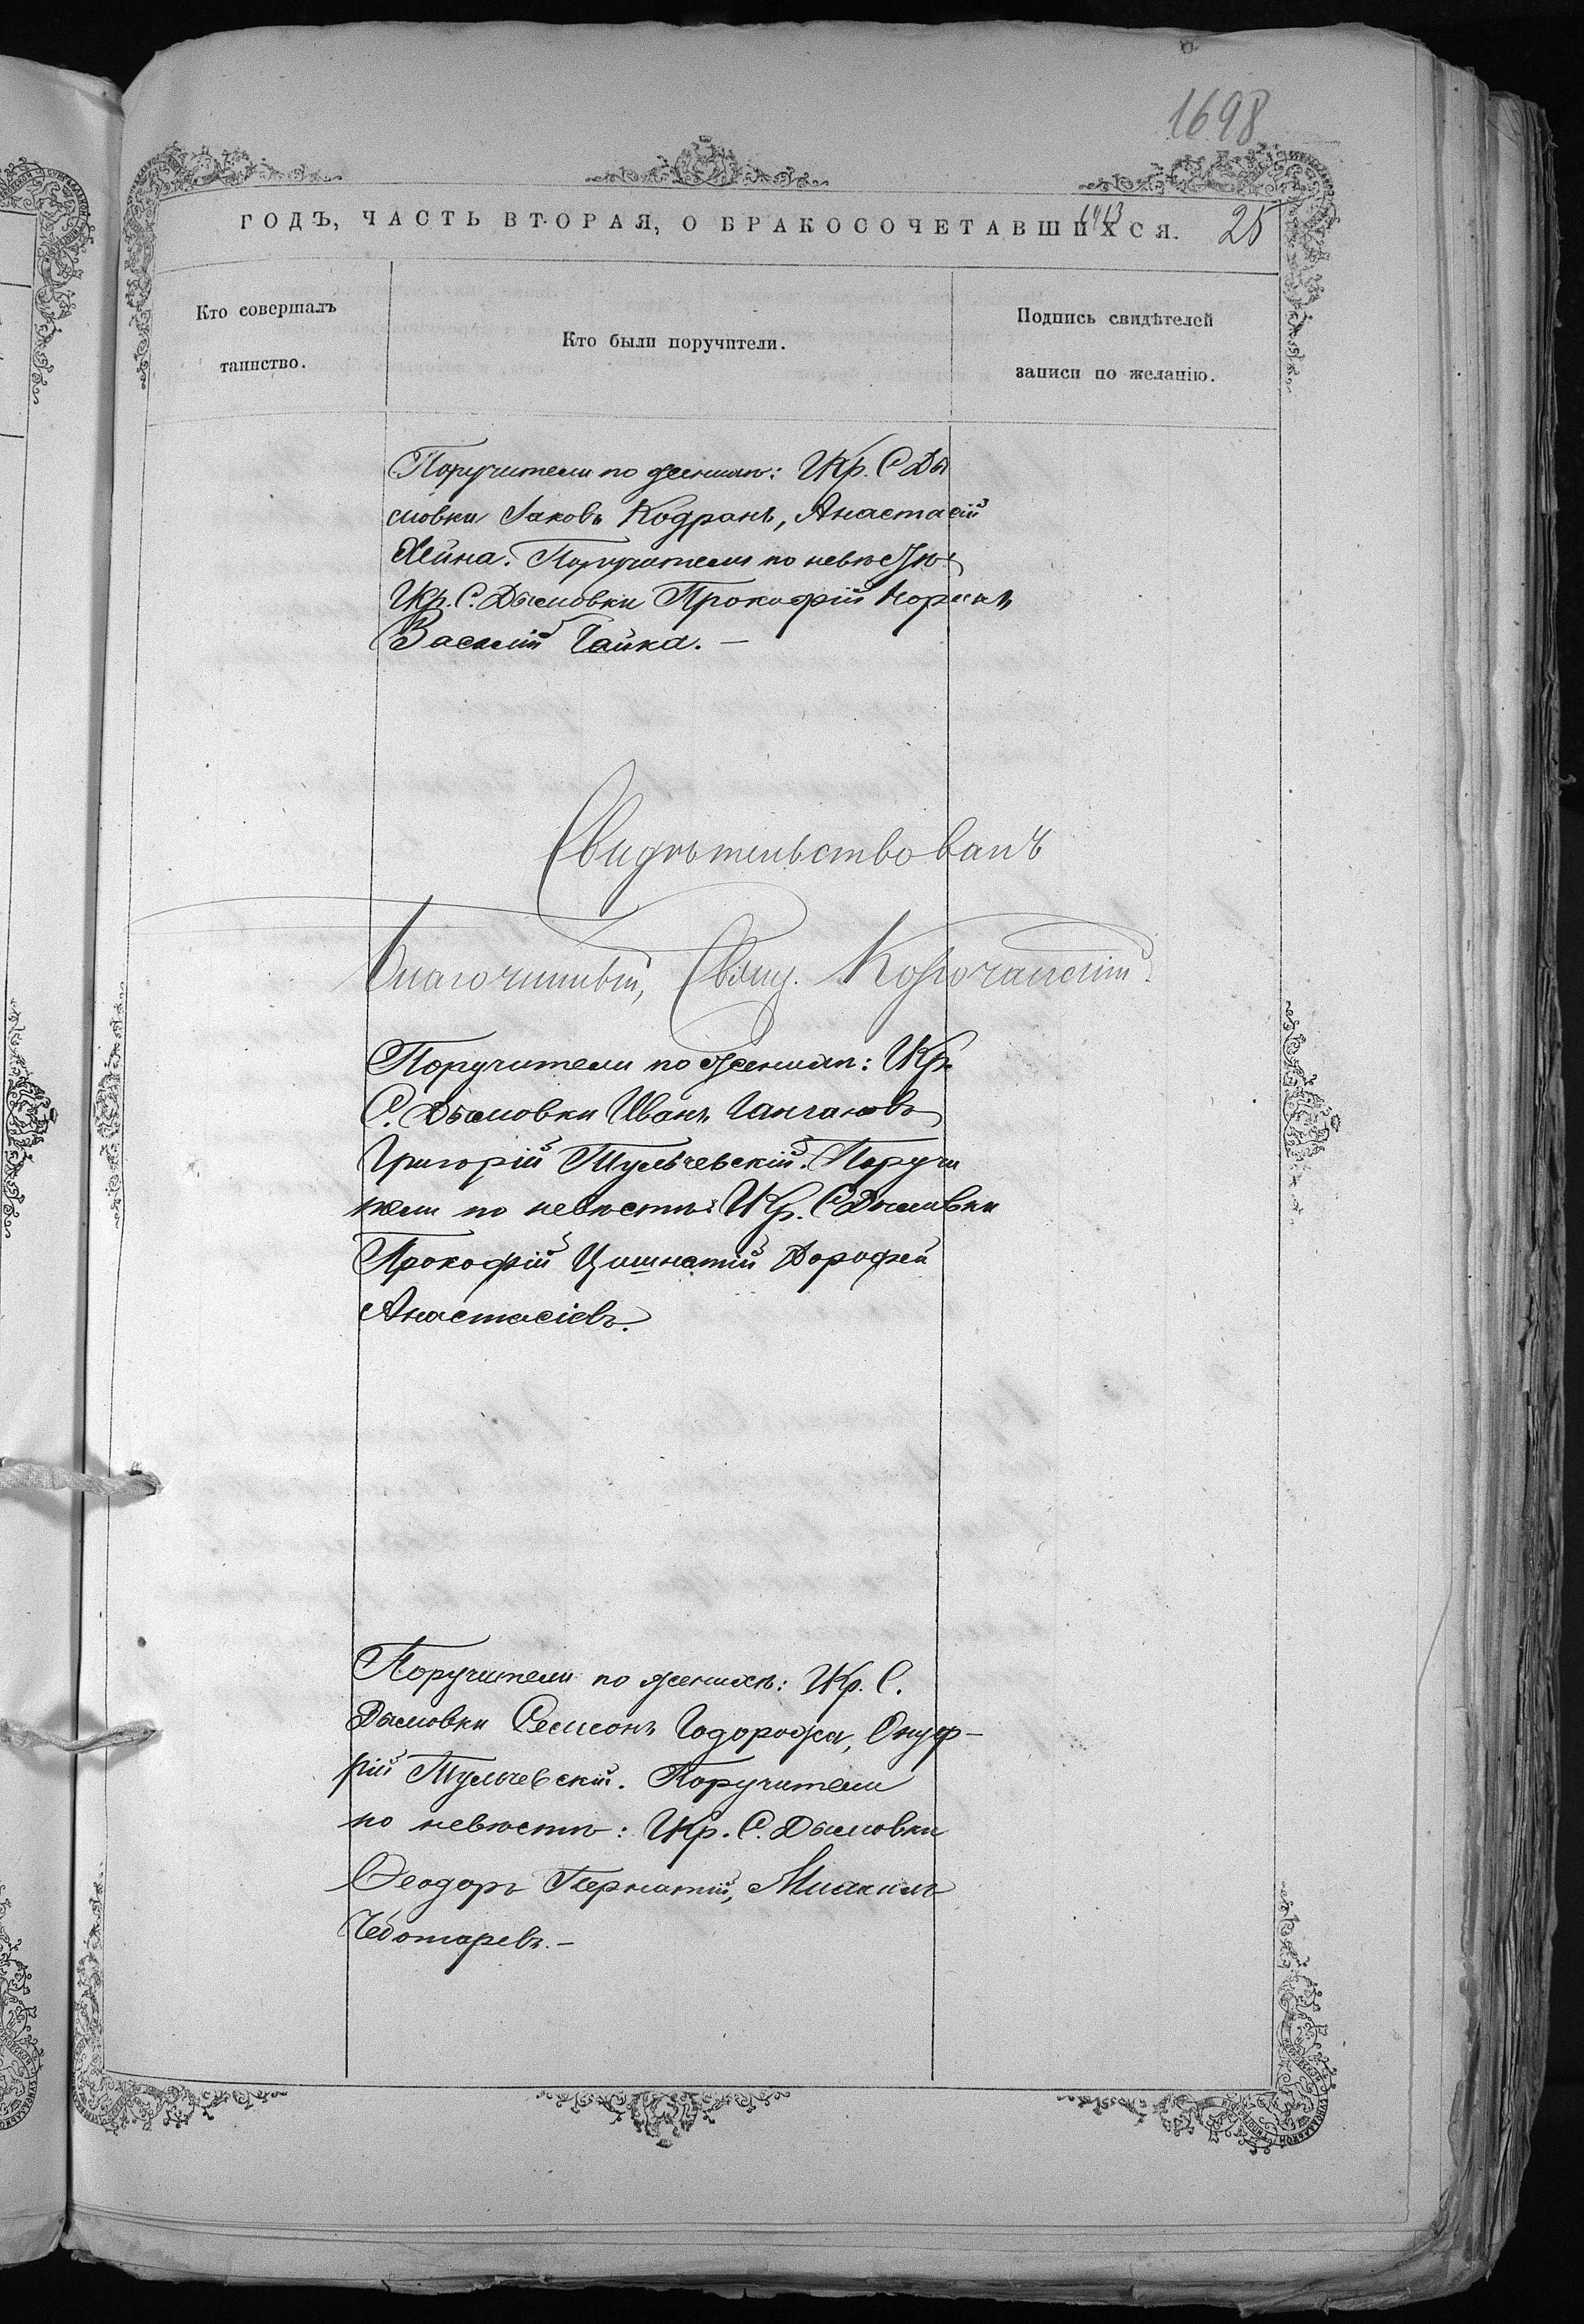 1698
ГОДЪ, ЧАСТЬ ВТОРАЯ, О БРАКОСОЧЕТАВШИХСЯ. 1913 25
Кто совершалъ
таинство.
Кто были поручители.
Подпись свидѣтелей
записи по желанію.
Поручители по женихѣ: Жр. С Ды
мовки Іаковъ Кодранъ, Анастасій
Хейна. Поручители по невѣстѣ
Жр. С. Дымовки Прокофій
Василій Чайка. —
Свидѣтельствовалъ
Благочинный, Свящ.
Поручители по женихѣ: Жр.
С. Дымовки Иванъ
Григорій Тульчевскій. Поручи
тели по невѣстѣ: Жр. С Дымовки
Прокофій Дорофей
Анастасіевъ.
Поручители по женихѣ: Жр. С.
Дымовки Семіонъ Тодорожа, Онуф–
рій Тульчевскій. Поручители
по невѣстѣ: Жр. С. Дымовки
Ѳеодоръ Пернатій, Михаилъ
Чеботаревъ. —